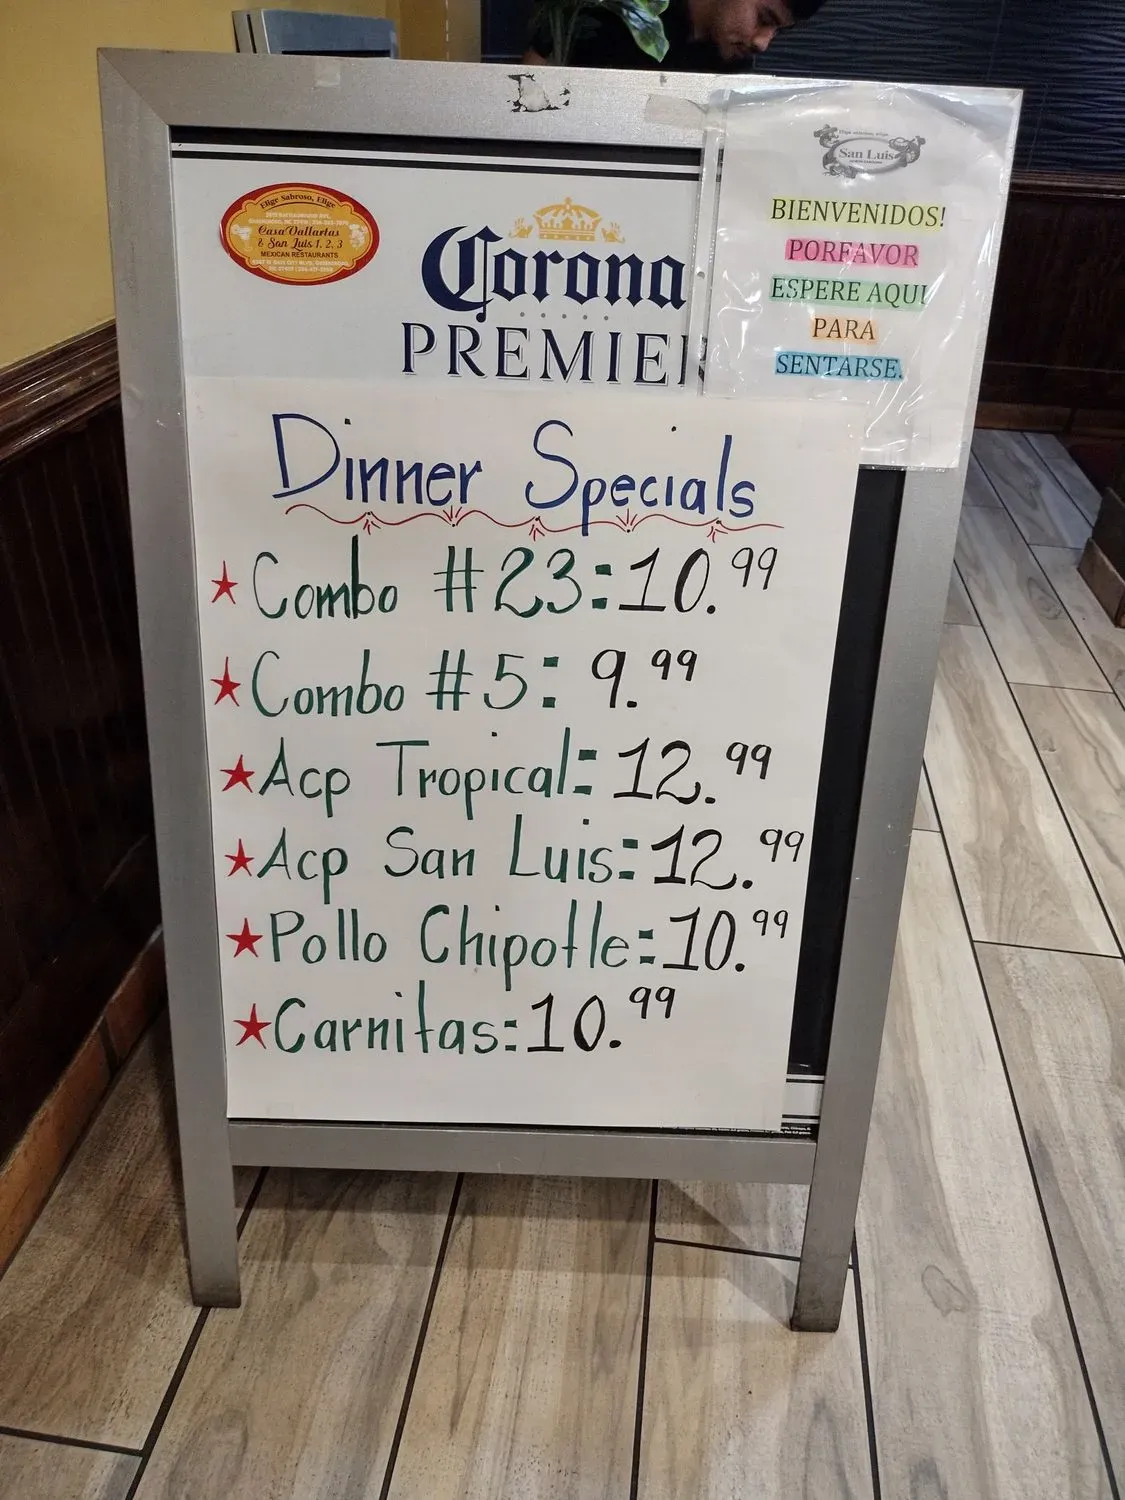 Elige Sabroso, Elige
Casa Vallartas
& San Luis 1, 2, 3
MEXICAN RESTAURANTS
Corona
PREMIER
San Luis
BIENVENIDOS!
PORFAVOR
ESPERE AQUI
PARA
SENTARSE.
Dinner Specials
★ Combo #23: 10.99
★ Combo #5: 9.99
★ Acp Tropical: 12.99
★ Acp San Luis: 12.99
★ Pollo Chipotle: 10.99
★ Carnitas: 10.99